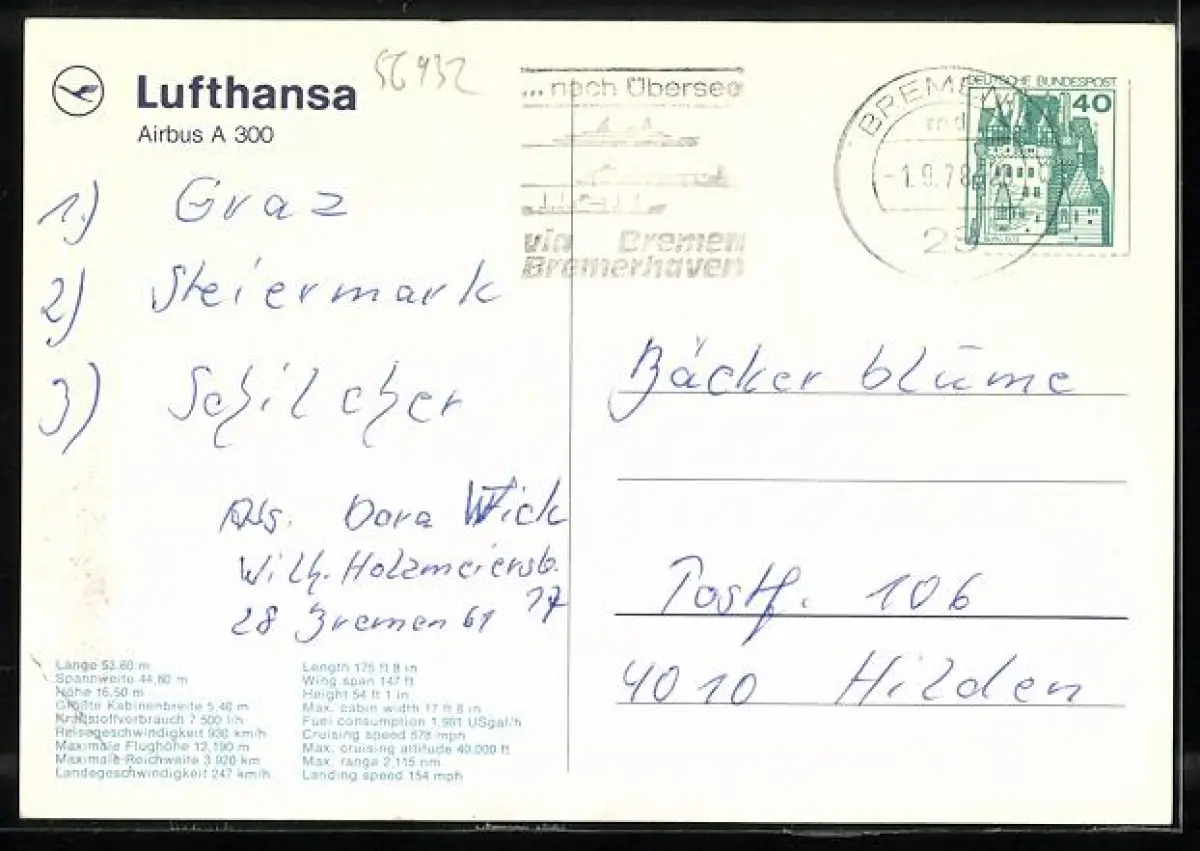 Lufthansa
Airbus A 300
56432
1.) Graz
2) Steiermark
3) Schilcher
Abs. Dora Wick
Wilh. Holzmeierstr.
17
28 Bremen 61
Länge 53,60 m
Spannweite 44,80 m
Höhe 16,50 m
Größte Kabinenbreite 5,40 m
Kraftstoffverbrauch 7 500 l/h
Reisegeschwindigkeit 930 km/h
Maximale Flughöhe 12,190 m
Maximale Reichweite 3 920 km
Landegeschwindigkeit 247 km/h
Length 175 ft 8 in
Wing span 147 ft
Height 54 ft 1 in
Max. cabin width 17 ft 8 in
Fuel consumption 1,981 USgal/h
Cruising speed 578 mph
Max. cruising altitude 40,000 ft
Max. range 2,115 nm
Landing speed 154 mph
... nach Übersee
via Bremen
Bremerhaven
BREMEN
-1.9.78
28
DEUTSCHE BUNDESPOST
40
Bäcker blume
Postf. 106
4010 Hilden